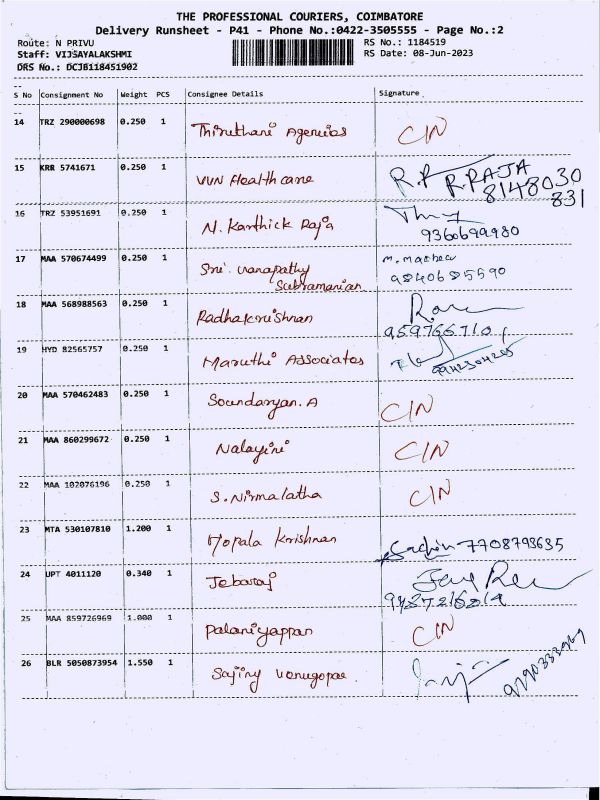 THE PROFESSIONAL COURIERS, COIMBATORE
Delivery Runsheet - P41 - Phone No.:0422-3505555 - Page No.:2
Route: N PRIVU RS No.: 1184519
Staff: VIJSAYALAKSHMI RS Date: 08-Jun-2023
DRS No.: DCJB118451902
S No Consignment No Weight PCS Consignee Details Signature
14 TRZ 290000698 0.250 1 Thiruthani Agencies CIN
15 KRR 5741671 0.250 1 VVN Health care R.P RPRAJA
8148030
831
16 TRZ 53951691 0.250 1 N. Karthick Raja
9360699980
17 MAA 570674499 0.250 1 Sri. Vanapathy M. Mathew
Subramanian 9840685590
18 MAA 568988563 0.250 1 Radhakrishnan
9597667101
19 HYD 82565757 0.250 1 Maruthi Associates
20 MAA 570462483 0.250 1 Soundaryan. A CIN
21 MAA 860299672 0.250 1 Nalayini CIN
22 MAA 102076196 0.250 1 S. Nirmalatha CIN
23 MTA 530107810 1.200 1 Gopala Krishnan Sachin - 7708793635
24 UPT 4011120 0.340 1 Jebaraj
9487216814
25 MAA 859726969 1.000 1 Palaniyappan CIN
26 BLR 5050873954 1.550 1 Sajiny Venugopae 9790333969